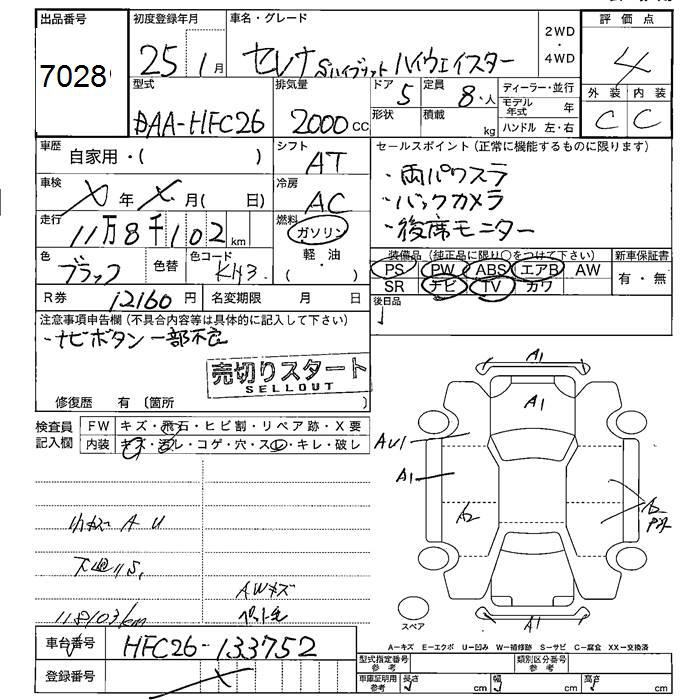 出品番号
7028
初度登録年月
25 1月
車名・グレード
セレナ Sハイブリット ハイウェイスター
2WD
・
4WD
評価点
4
外装 内装
C C
型式
DAA-HFC26
排気量
2000cc
ドア
5
定員
8・人
形状
積載
kg
ディーラー・並行
モデル年式 年
ハンドル 左・右
車歴
自家用・( )
シフト
AT
セールスポイント(正常に機能するものに限ります)
・両パワスラ
・バックカメラ
・後席モニター
車検
X年 X月( 日)
冷房
AC
走行
11万8千102km
燃料
ガソリン
軽・油
( )
色
ブラック
色替
色コード
KH3
装備品(純正品に限り○をつけて下さい)
PS PW ABS エアB AW
SR ナビ TV カワ
新車保証書
有・無
R券 12160円
名変期限 月 日
後日品
注意事項申告欄(不具合内容等は具体的に記入して下さい)
・ナビボタン一部不良
売切りスタート
SELLOUT
修復歴 有〔箇所 〕
検査員記入欄
FW キズ・飛石・ヒビ割・リペア跡・X要
内装 キズ・汚レ・コゲ・穴・スレ・キレ・破レ
A U
S,
AWキズ
118103km
A1
A1
AU1
A1
A2
A1
スペア
A-キズ E-エクボ U-凹み W-補修跡 S-サビ C-腐食 XX-交換済
車台番号 HFC26-133752
登録番号
型式指定番号参考
類別区分番号参考
車庫証明用参考 長さ cm 幅 cm 高さ cm